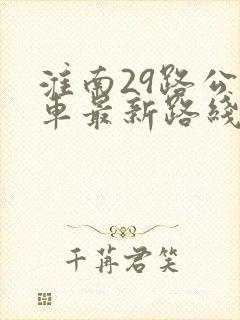 淮南29路公
车最新路线
千苒君笑